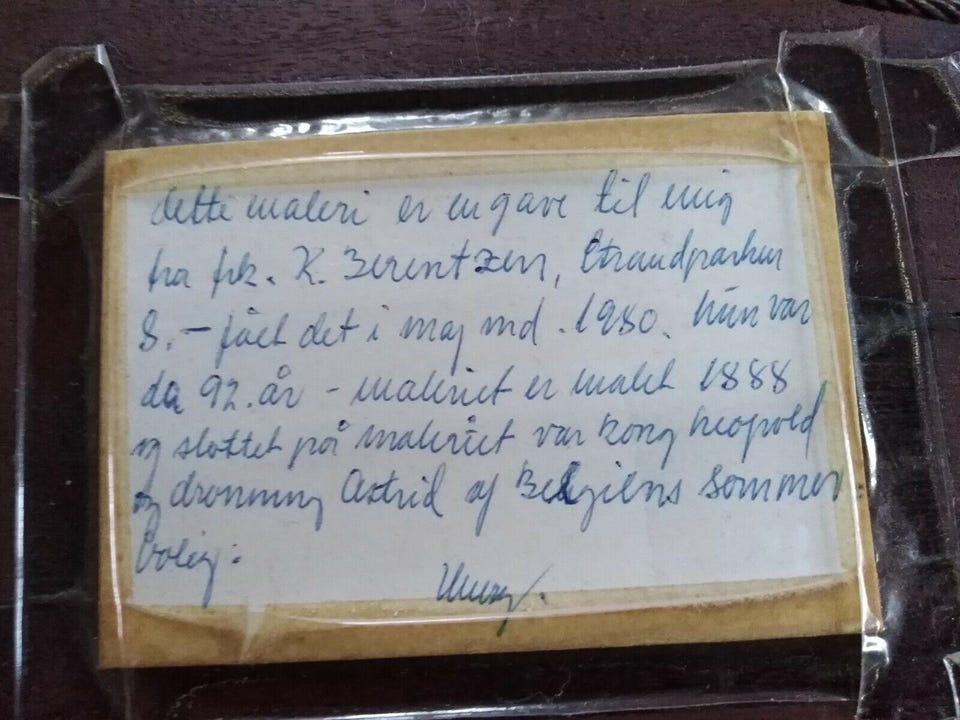 dette maleri er en gave til mig
fra frk. K. Berentzen, Strandparken
8. – fået det i maj md. 1980. hun var
da 92. år – maleriet er malet 1888
og slottet på maleriet var kong Leopold
og dronning Astrid af Belgiens sommer
bolig.